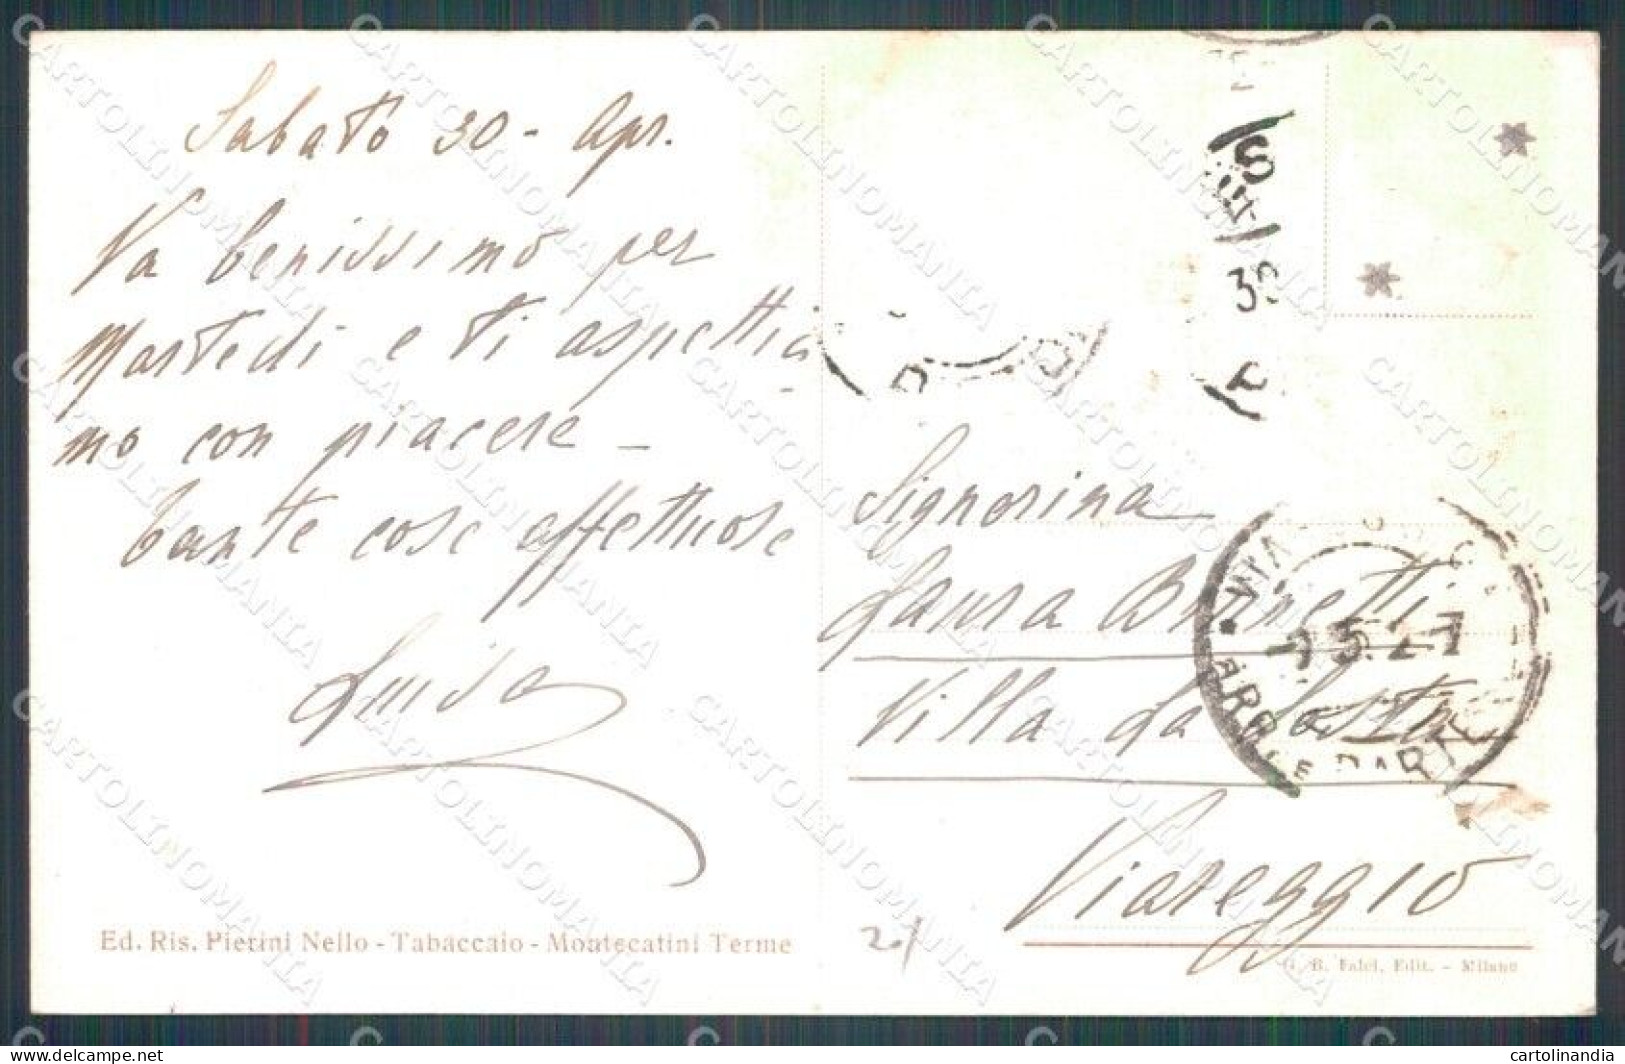 Sabato 30 - Apr.
Va benissimo per
Martedi e ti aspettia
mo con piacere -
tante cose affettuose
Luisa
Signorina
Laura Brunetti
Villa La Sosta
Viareggio
VIAREGGIO
-1.5.27
ARRIVI E PARTENZE
Ed. Ris. Pierini Nello - Tabaccaio - Montecatini Terme
G. B. Falci, Edit. - Milano
CARTOLINOMANIA
cartolinandia